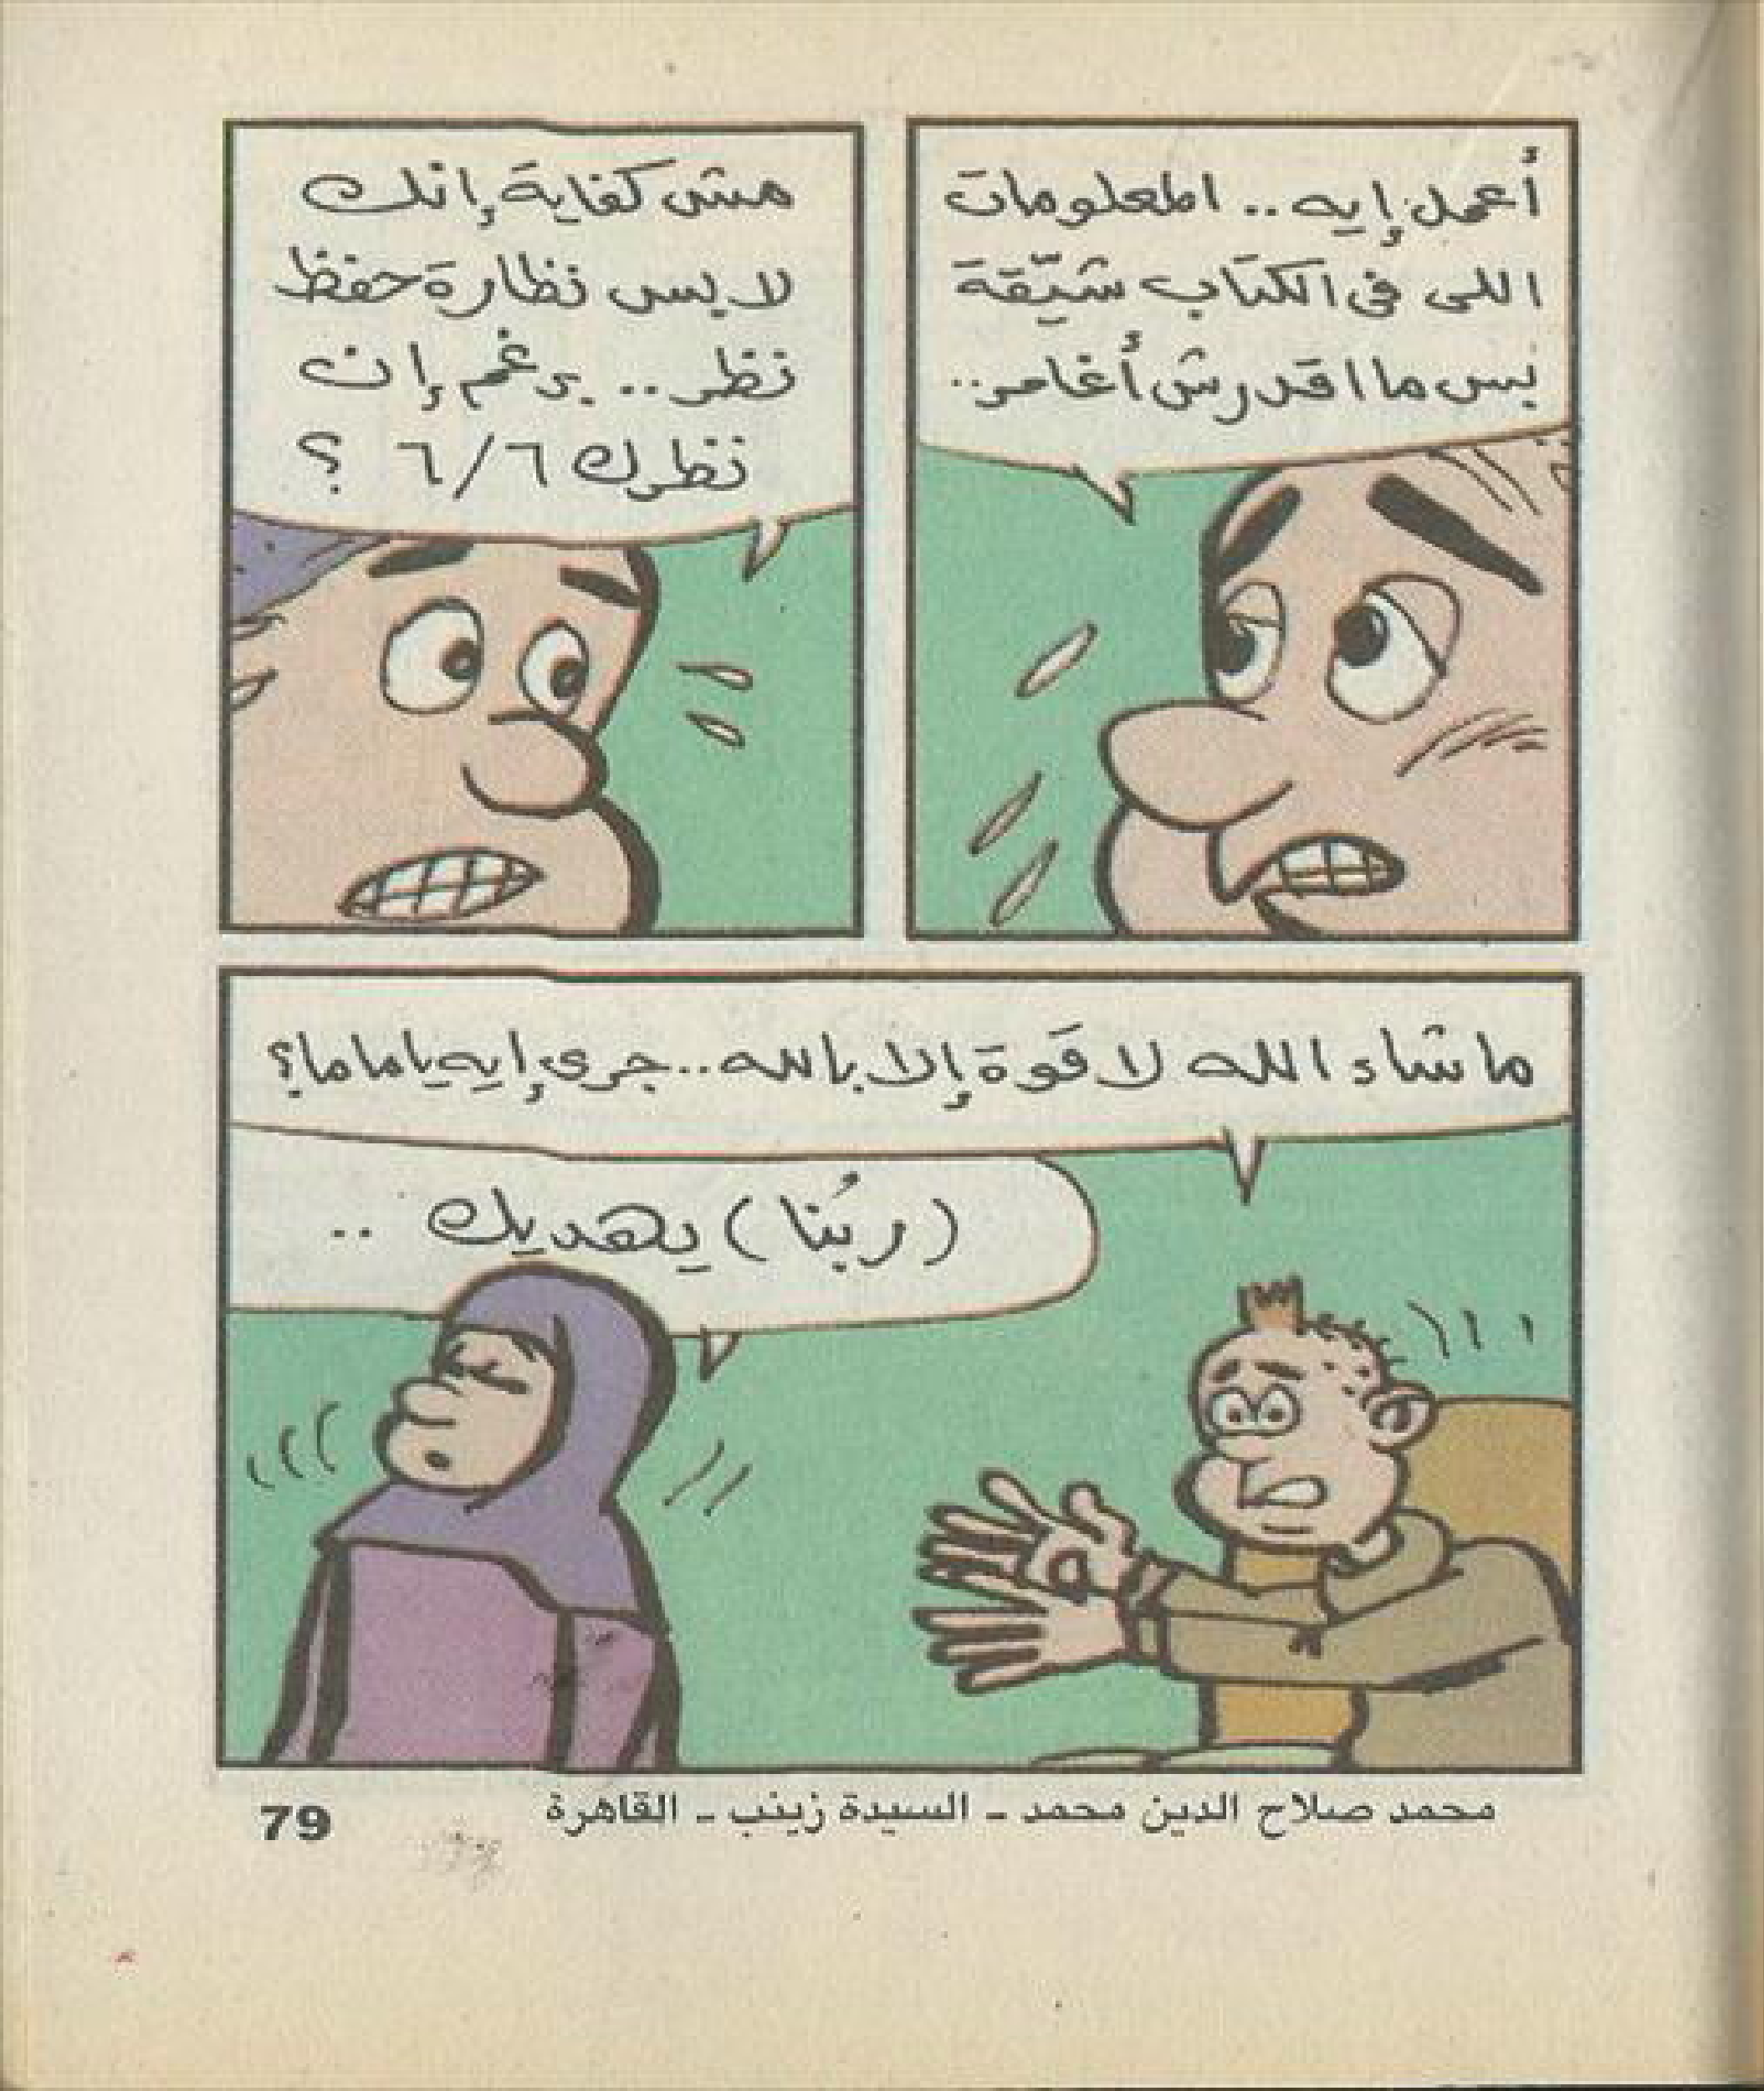 أعمل إيه.. المعلومات
اللى فى الكتاب شيّقة
بس ما اقدرش أغامر..
مش كفاية إنك
لابس نظارة حفظ
نظر.. برغم إن
نظرك ٦/٦ ؟
ما شاء الله لا قوة إلا بالله.. جرى إيه يا ماما؟
(ربُنا) يهديك ..
محمد صلاح الدين محمد - السيدة زينب - القاهرة
79